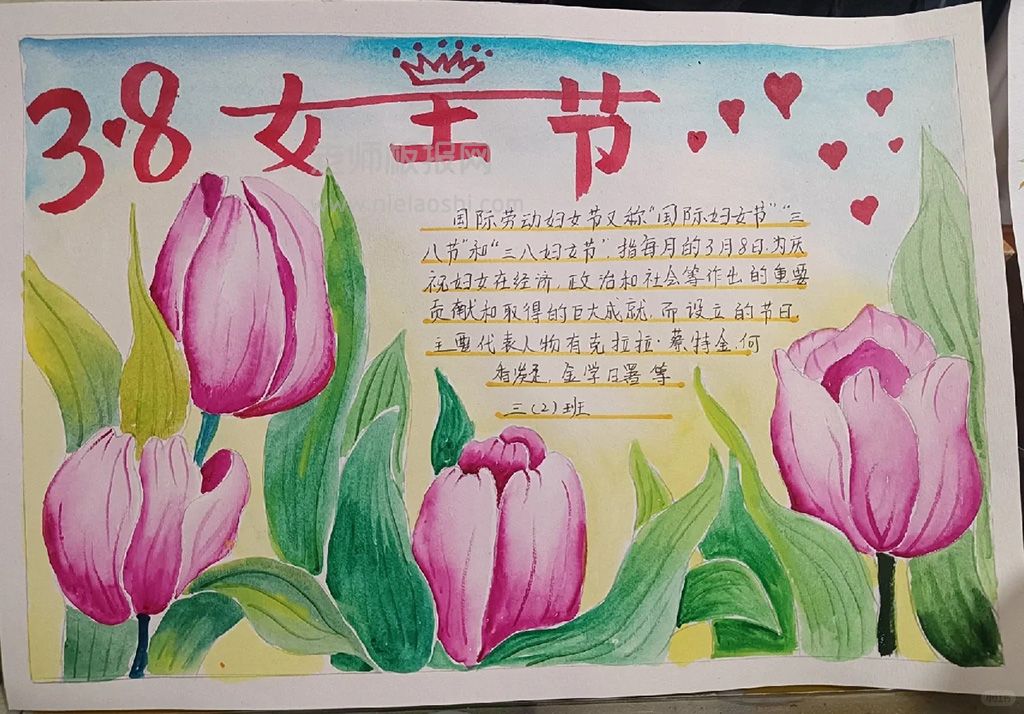 3.8 女王节
老师板报网
www.nielaoshi.com
国际劳动妇女节又称“国际妇女节”“三
八节”和“三八妇女节”.指每月的3月8日.为庆
祝妇女在经济.政治和社会等作出的重要
贡献和取得的巨大成就.而设立的节日.
主要代表人物有克拉拉·蔡特金.何
香凝.金学曙等
三(2)班